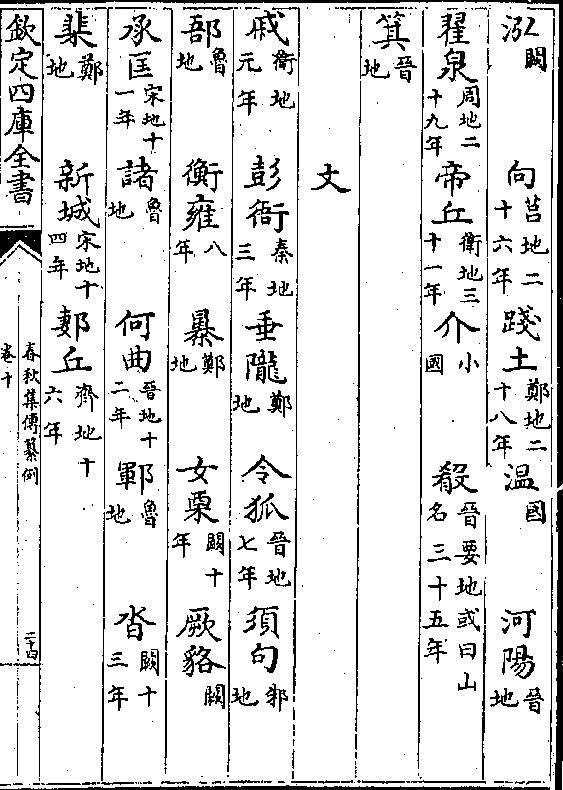 泓闕 向莒地二十六年 踐土鄭地二十八年 温國 河陽晉地
翟泉周地二十九年 帝丘衛地三十一年 介小國 殽晉要地或曰山名三十五年
箕晉地
文
戚衛地元年 彭衙秦地三年 垂隴鄭地 令狐晉地七年 須句邾地
郚魯地 衡雍八年 㬥鄭地 女栗闕十年 厥貉闕
承匡宋地十一年 諸魯地 何曲晉地十二年 鄆魯地 沓闕十三年
棐鄭地 新城宋地十四年 郪丘齊地十六年
欽定四庫全書 春秋集傳纂例卷十 二十四